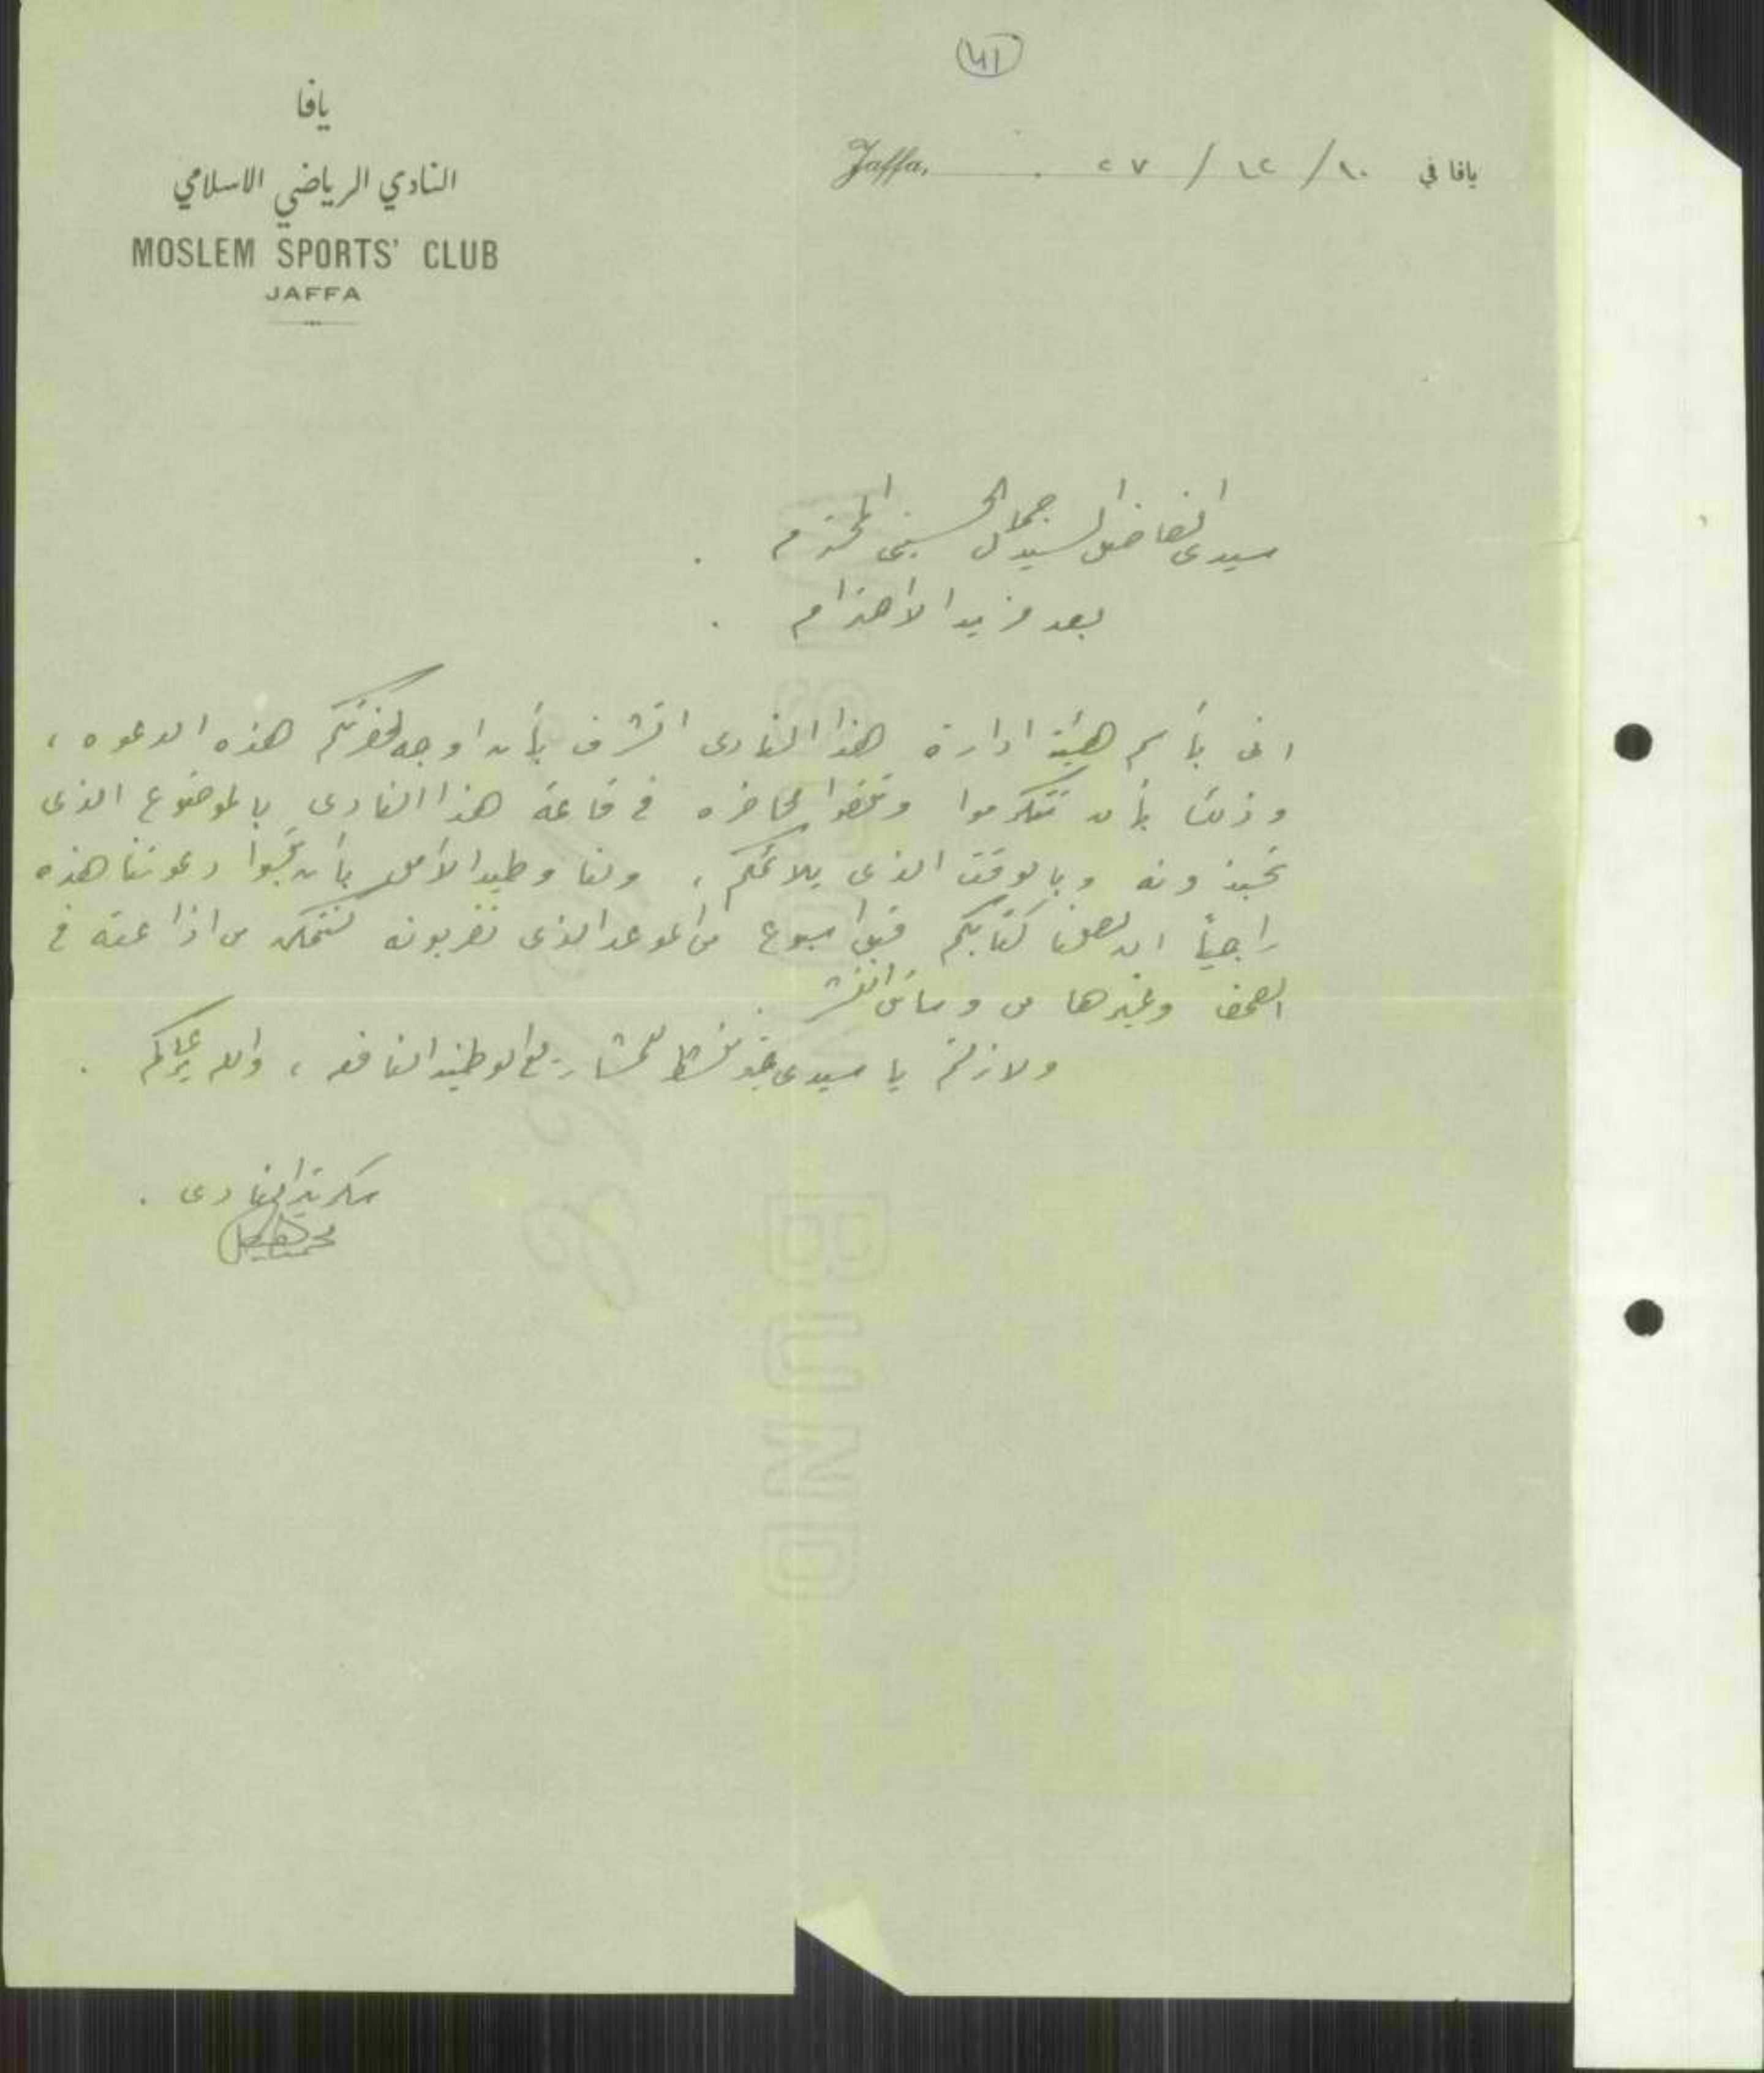 41
يافا
النادي الرياضي الاسلامي
MOSLEM SPORTS' CLUB
JAFFA
Jaffa, ٢٧ / ١٢ / ١٠ يافا في
سيدى الفاضل السيد جمال الحسينى المحترم .
بعد مزيد الاحترام .
انى بأسم هيئة ادارة هذا النادى اتشرف بأن اوجه لحضرتكم هذه الدعوه ،
وذلك بأن تتكرموا وتلقوا محاضره في قاعة هذا النادى بالموضوع الذى
تحبذونه وبالوقت الذى يلائمكم ، ولنا وطيد الأمل بأن تجيبوا دعوتنا هذه
راجياً ان يصلنا كتابكم قبل اسبوع من الموعد الذى تضربونه لنتمكن من اذاعته في
الصحف وغيرها من وسائل النشر .
ولازلتم يا سيدى للمشاريع الوطنيه النافعه ، والله يرعاكم .
سكرتير النادى .
BOND